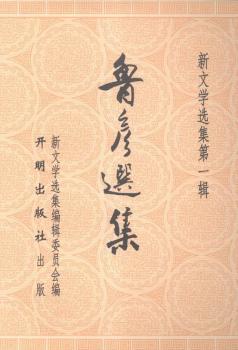 新文学选集第一辑
鲁彦選集
新文学选集编辑委员会编
开明出版社出版